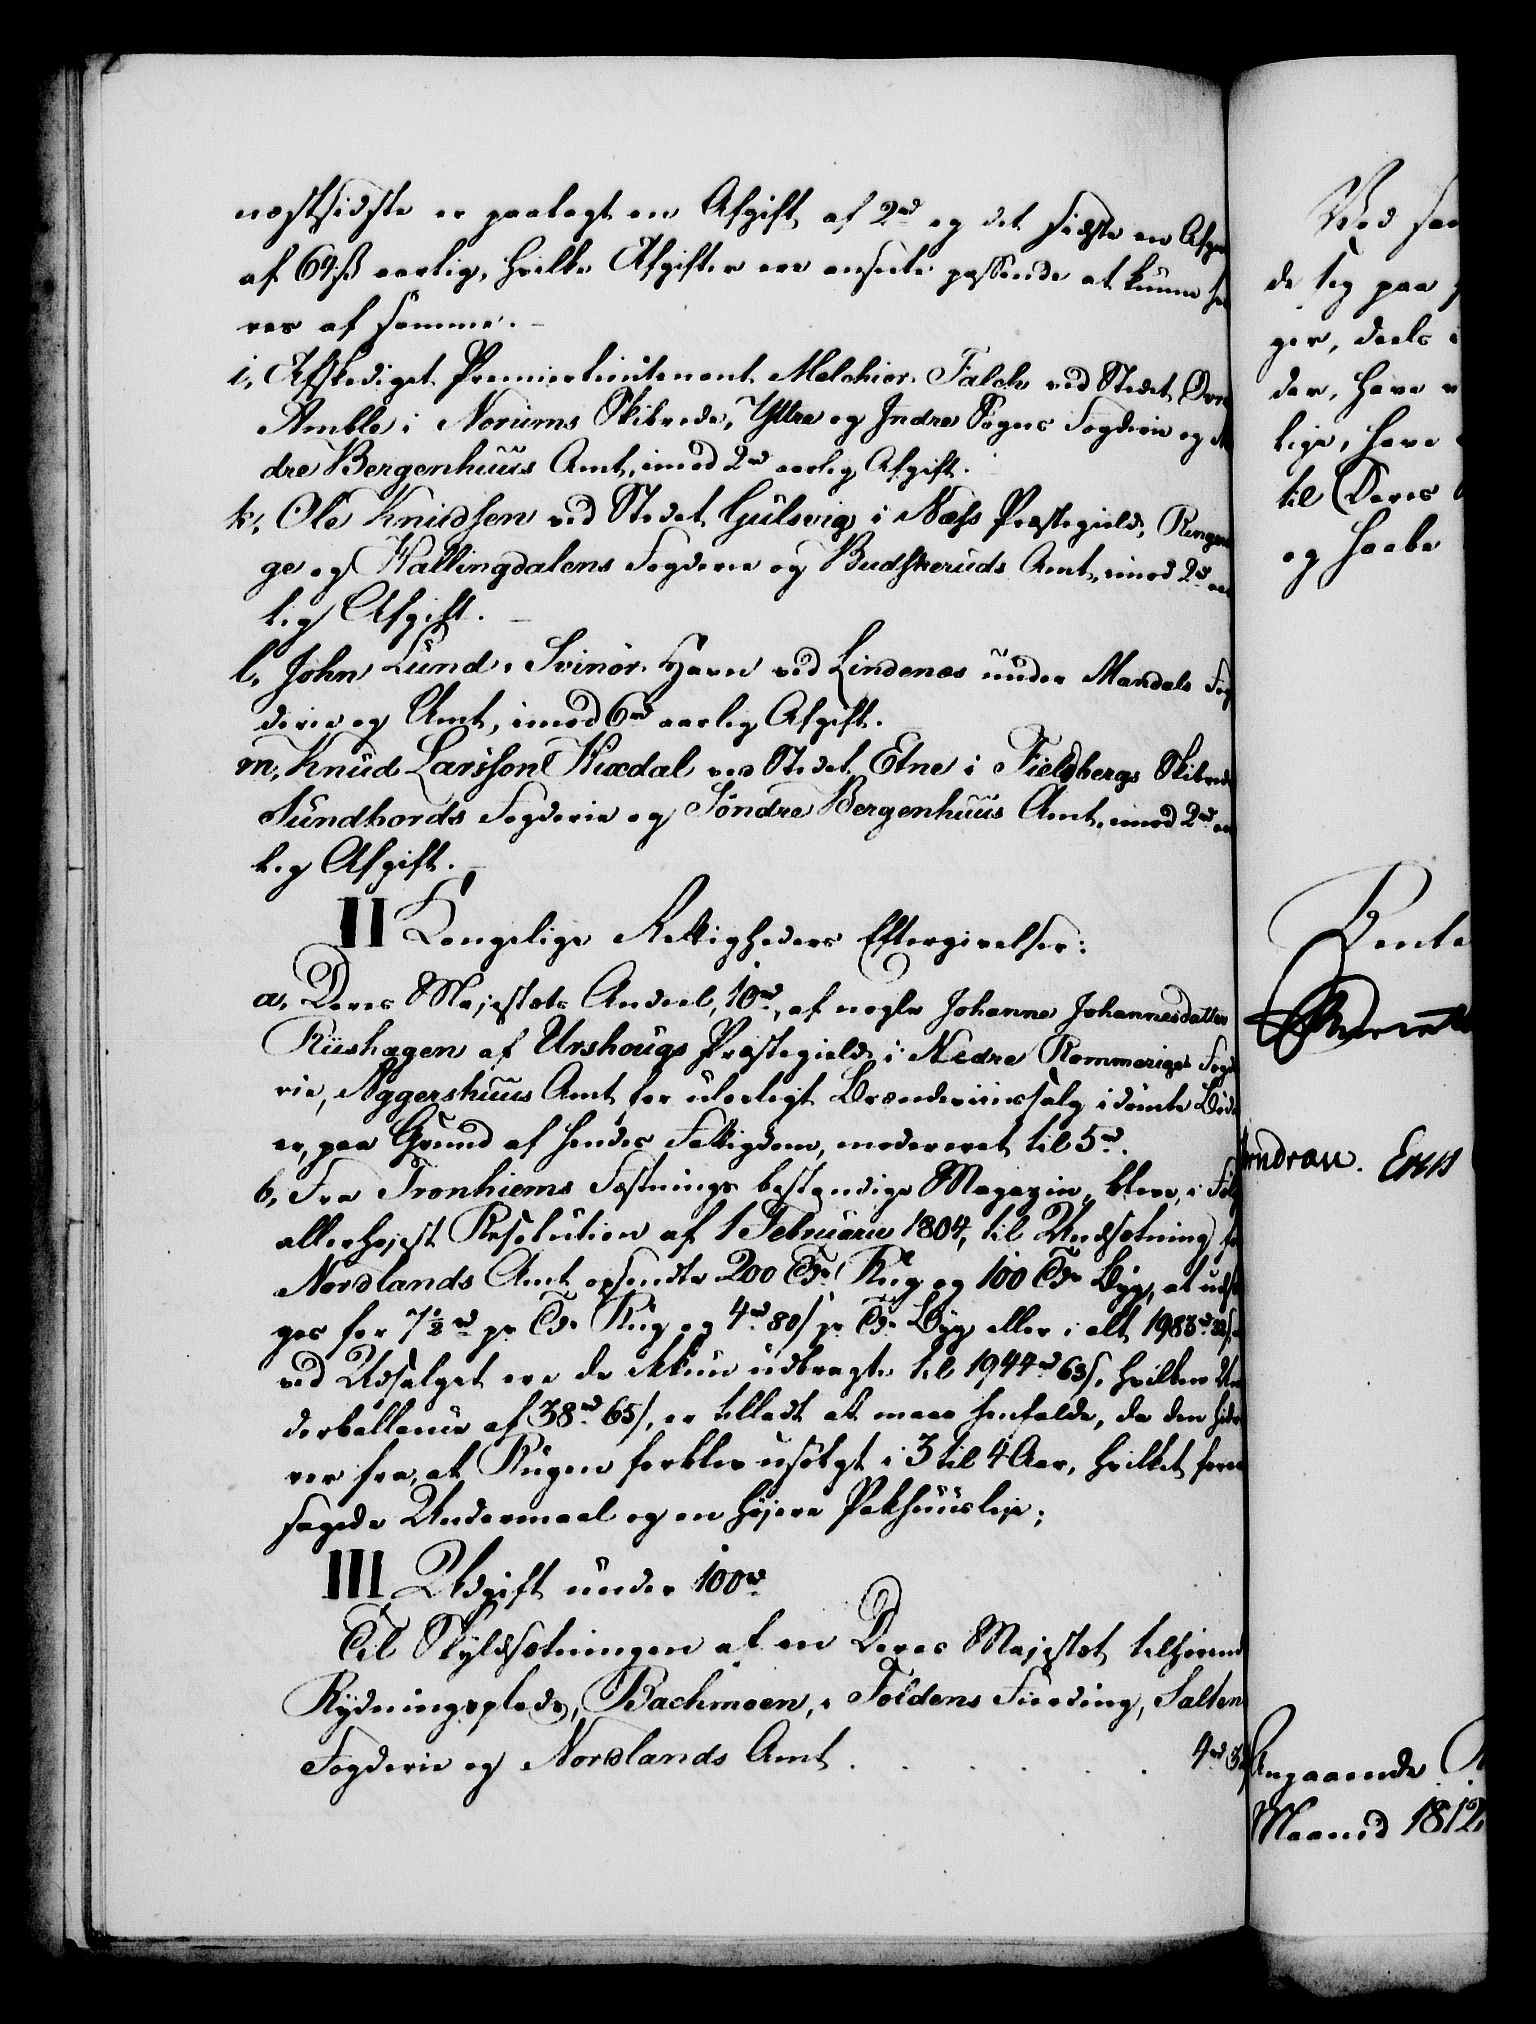 næstsidste er paalagt en Afgift af 2rd og det sidste en Afgi
af 64 ß aarlig, hvilke Afgifter ere ansete passende at kunne
res af samme.
i, Afskediget Premierlieutenant Melchior Falch ved Stedet Øvre
Amble i Norums Skibrede, Yttre og Indre Sogns Fogderie og
dre Bergenhuus Amt, imod 2rd aarlig Afgift.
k, Ole Knudsen ved Stedet Gulsvig i Næss Præstegield, Ringeri
ge og Hallingdalens Fogderie og Budskeruds Amt, imod 2rd aar
lig Afgift.
l, John Lund i Svinör Havn ved Lindenes under Mandals Fog
derie og Amt, imod 6rd aarlig Afgift.
m, Knud Larsson Hixdal ved Stedet Etne i Fieldbergs Skibrede
Sundhords Fogderie og Söndre Bergenhuus Amt, imod 2rd aar
lig Afgift.
II Kongelige Rettigheders Eftergivelser:
a, Deres Majestæts Andeel, 10rd, af nogle Johanne Johannesdatter
Riishagen af Urskougs Præstegield i Nedre Rommeriges Fogde
rie, Aggershuus Amt for ulovligt Brændeviinssalg idömte Böder
er, paa Grund af hendes Fattigdom, modereret til 5rd.
b, Fra Tronhiems Fæstnings bestandige Magazin, bleve, i Fölge
allerhöjest Resolution af 1 Februarii 1804, til Undsætning for
Nordlands Amt opsendte 200 Tdr Rug og 100 Tdr Byg, at udsæl
ges for 7½rd pr Tde Rug og 4rd 80 s pr Tde Byg eller i alt 1983rd 32 s,
ved Udsalget ere de ikkun udbragte til 1944rd 63 s, hvilken Un
derballance af 38rd 65 s, er tilladt at maae henfalde, da den hidrö
rer fra, at Rugen forblev usolgt i 3 til 4 Aar, hvilket foraar
sagede Undermaal og en höjere Pakhuusleje;
III Udgift under 100rd
Til Skyldsætningen af en Deres Majestæt tilhörende
Rydningsplads, Bachmoen, i Foldens Fierding, Saltens
Fogderie og Nordlands Amt . . . . . . 4rd 3
Ved
de sig paa
ger, deels
der, have
lige, have
til Deres
og haabe
Rente
Andræe. Erns
Angaaende
Maaned 1812